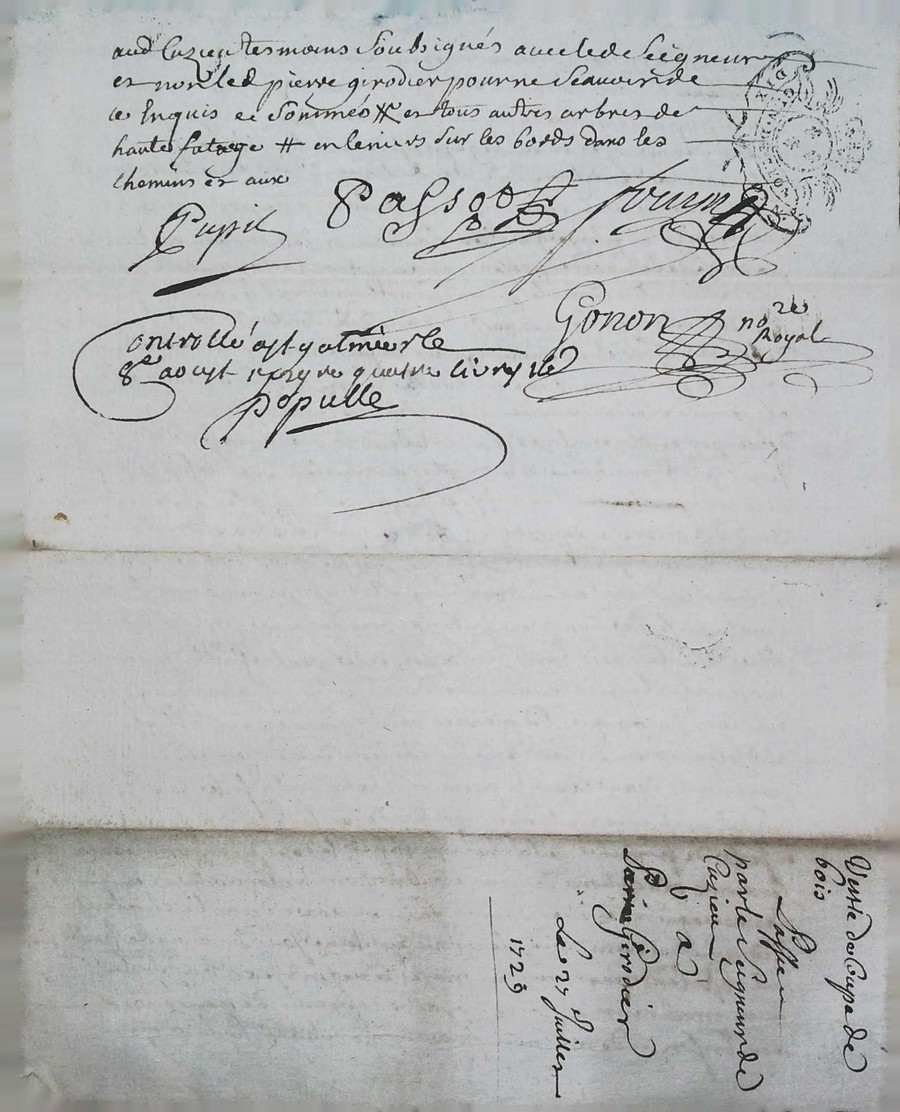 aud Cuzieu tesmoins Soubsignés avec led Seigneur
et non led pierre girodier pour ne Scavoir de
ce Enquis et Sommés # et tous autres arbres de
haute futaye # en leniers Sur les bords dans les
chemins et aux
Pupil Passot
Gonon no re Royal
Controllé a St galmier le
8e aoust 1729 re quatre livres
populle
Vente de Coupe de
bois
passée
par le Seigneur de
Cuzieu
a
Girodier
Le 27 Juillet
1729